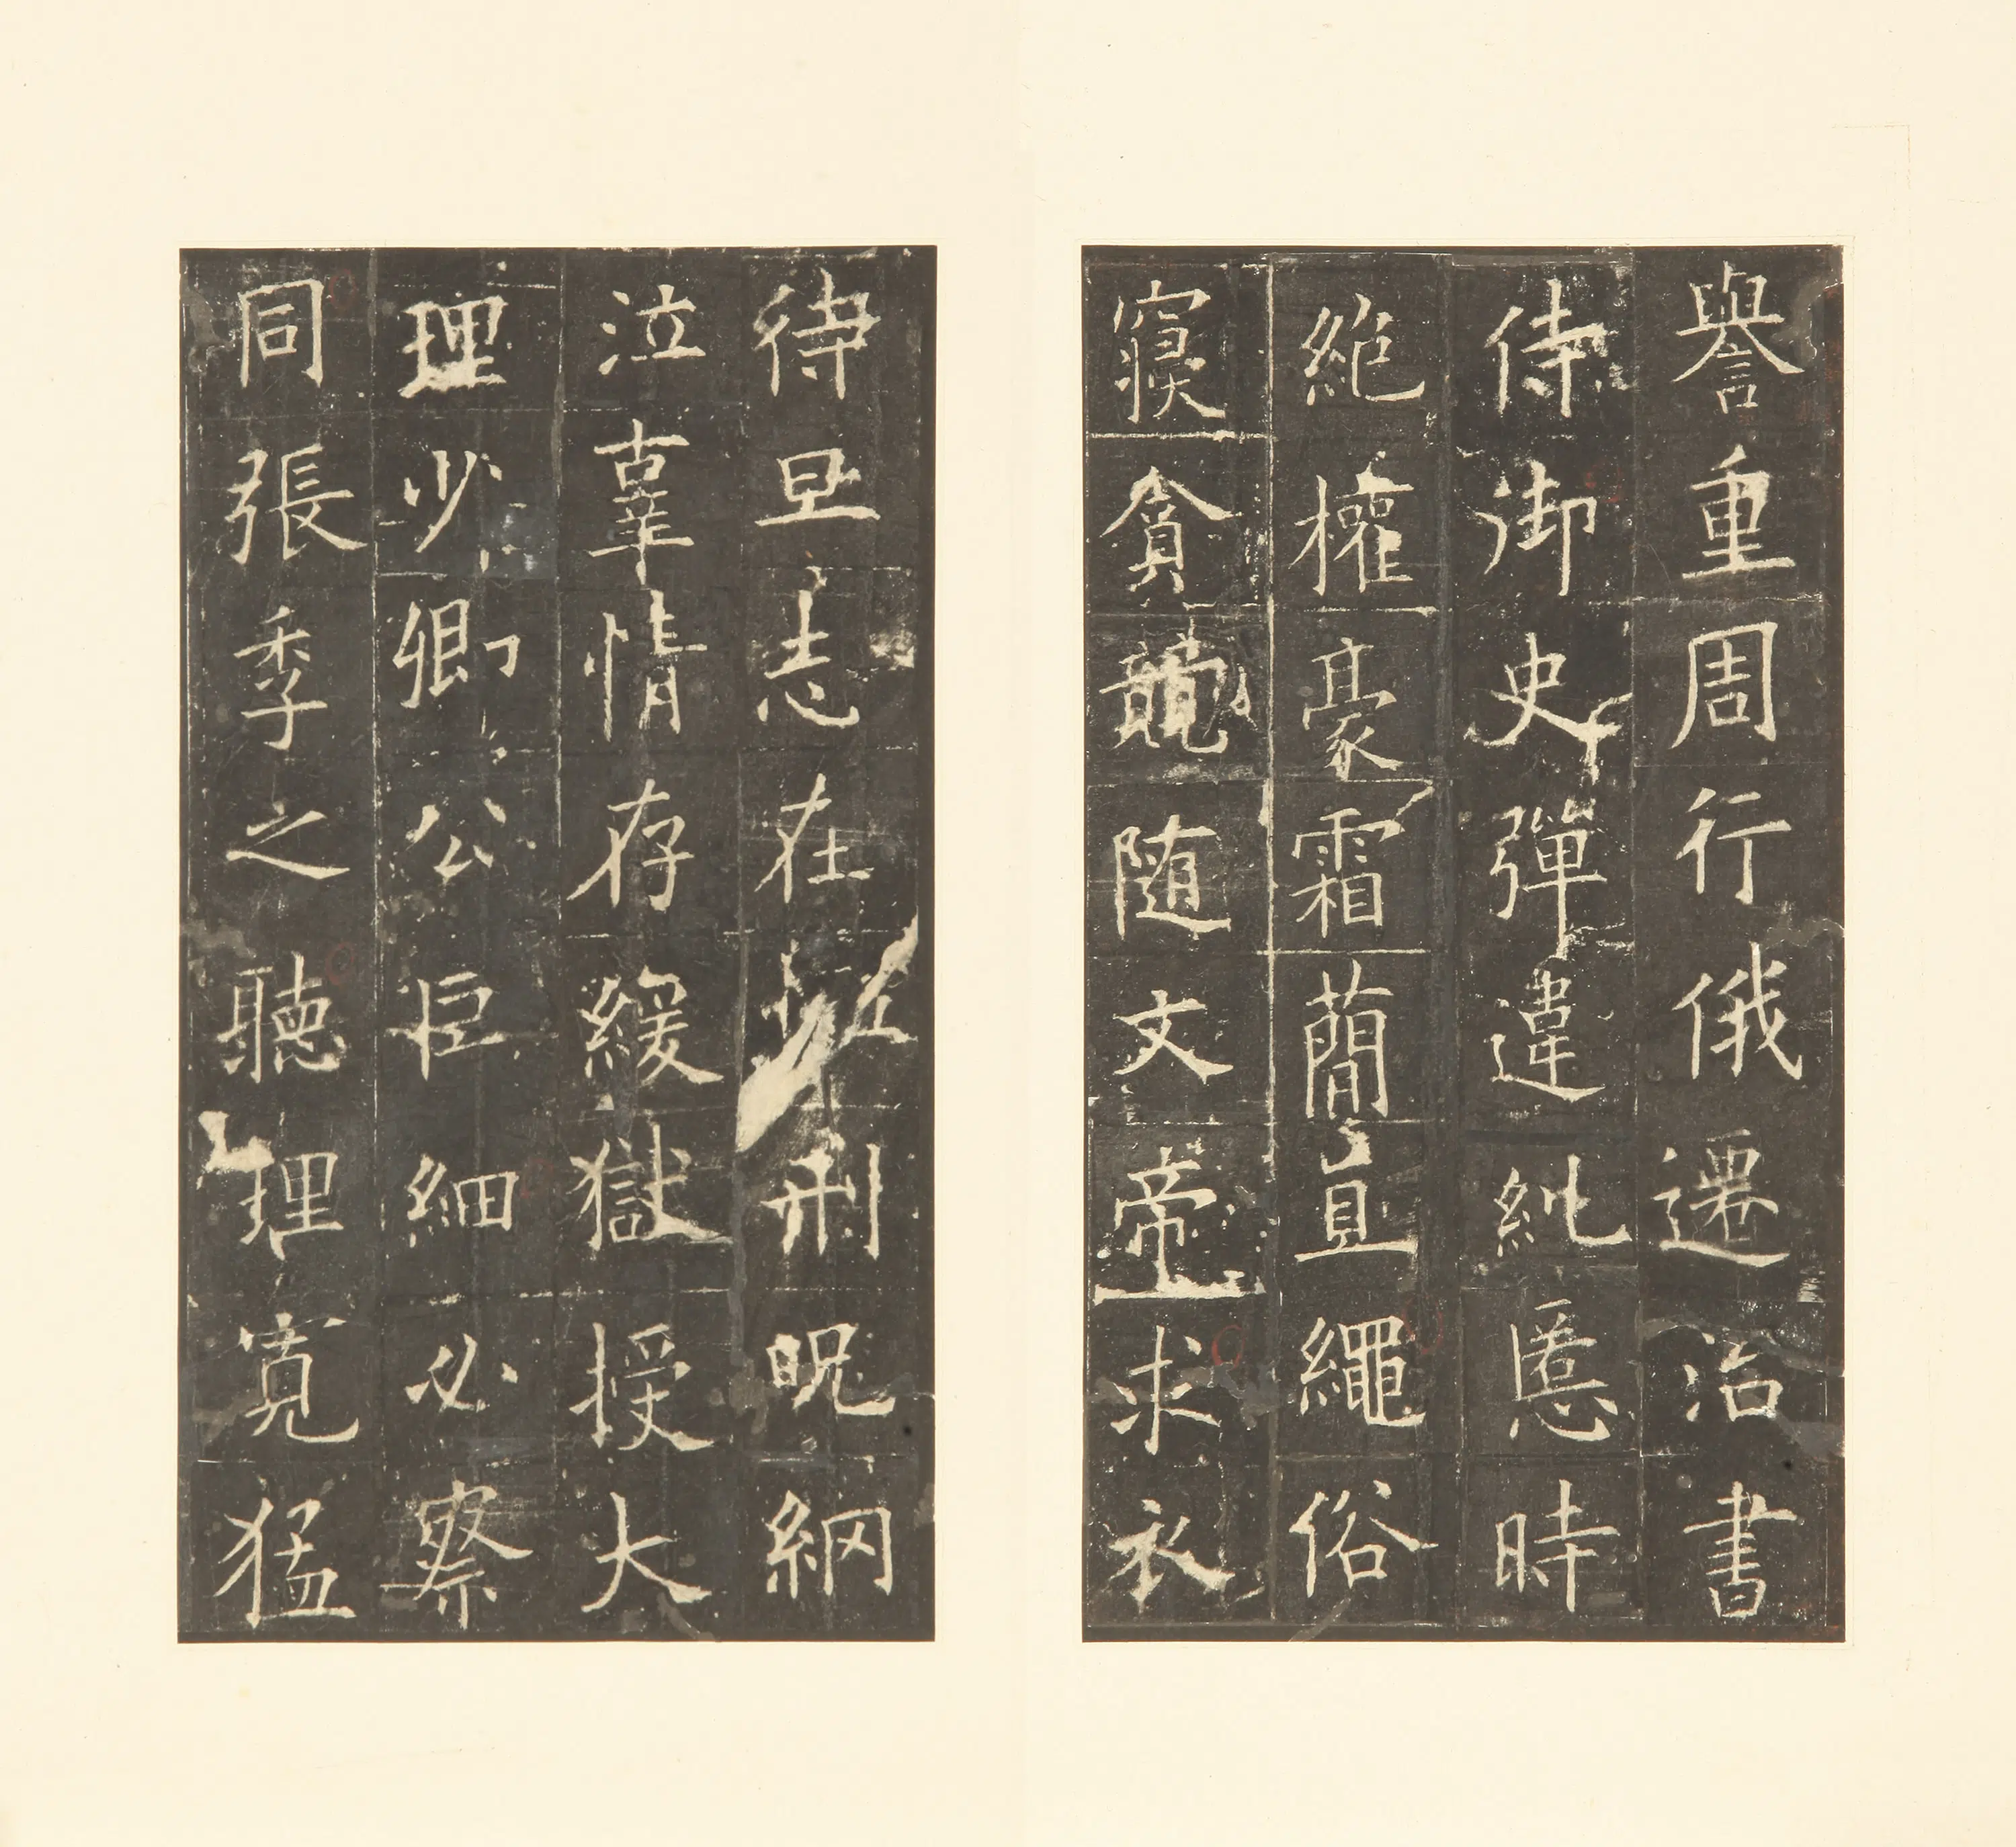 譽重周行俄遷治書
侍御史彈違糺慝時
絶權豪霜簡直繩俗
寑貪競随文帝求衣
待旦志在刑呪網
泣辜情存緩獄授大
理少卿公巨細必察
同張季之聽理寛猛